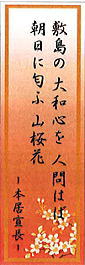 敷島の 大和心を 人問はば
朝日に匂ふ 山桜花
ー本居宣長ー